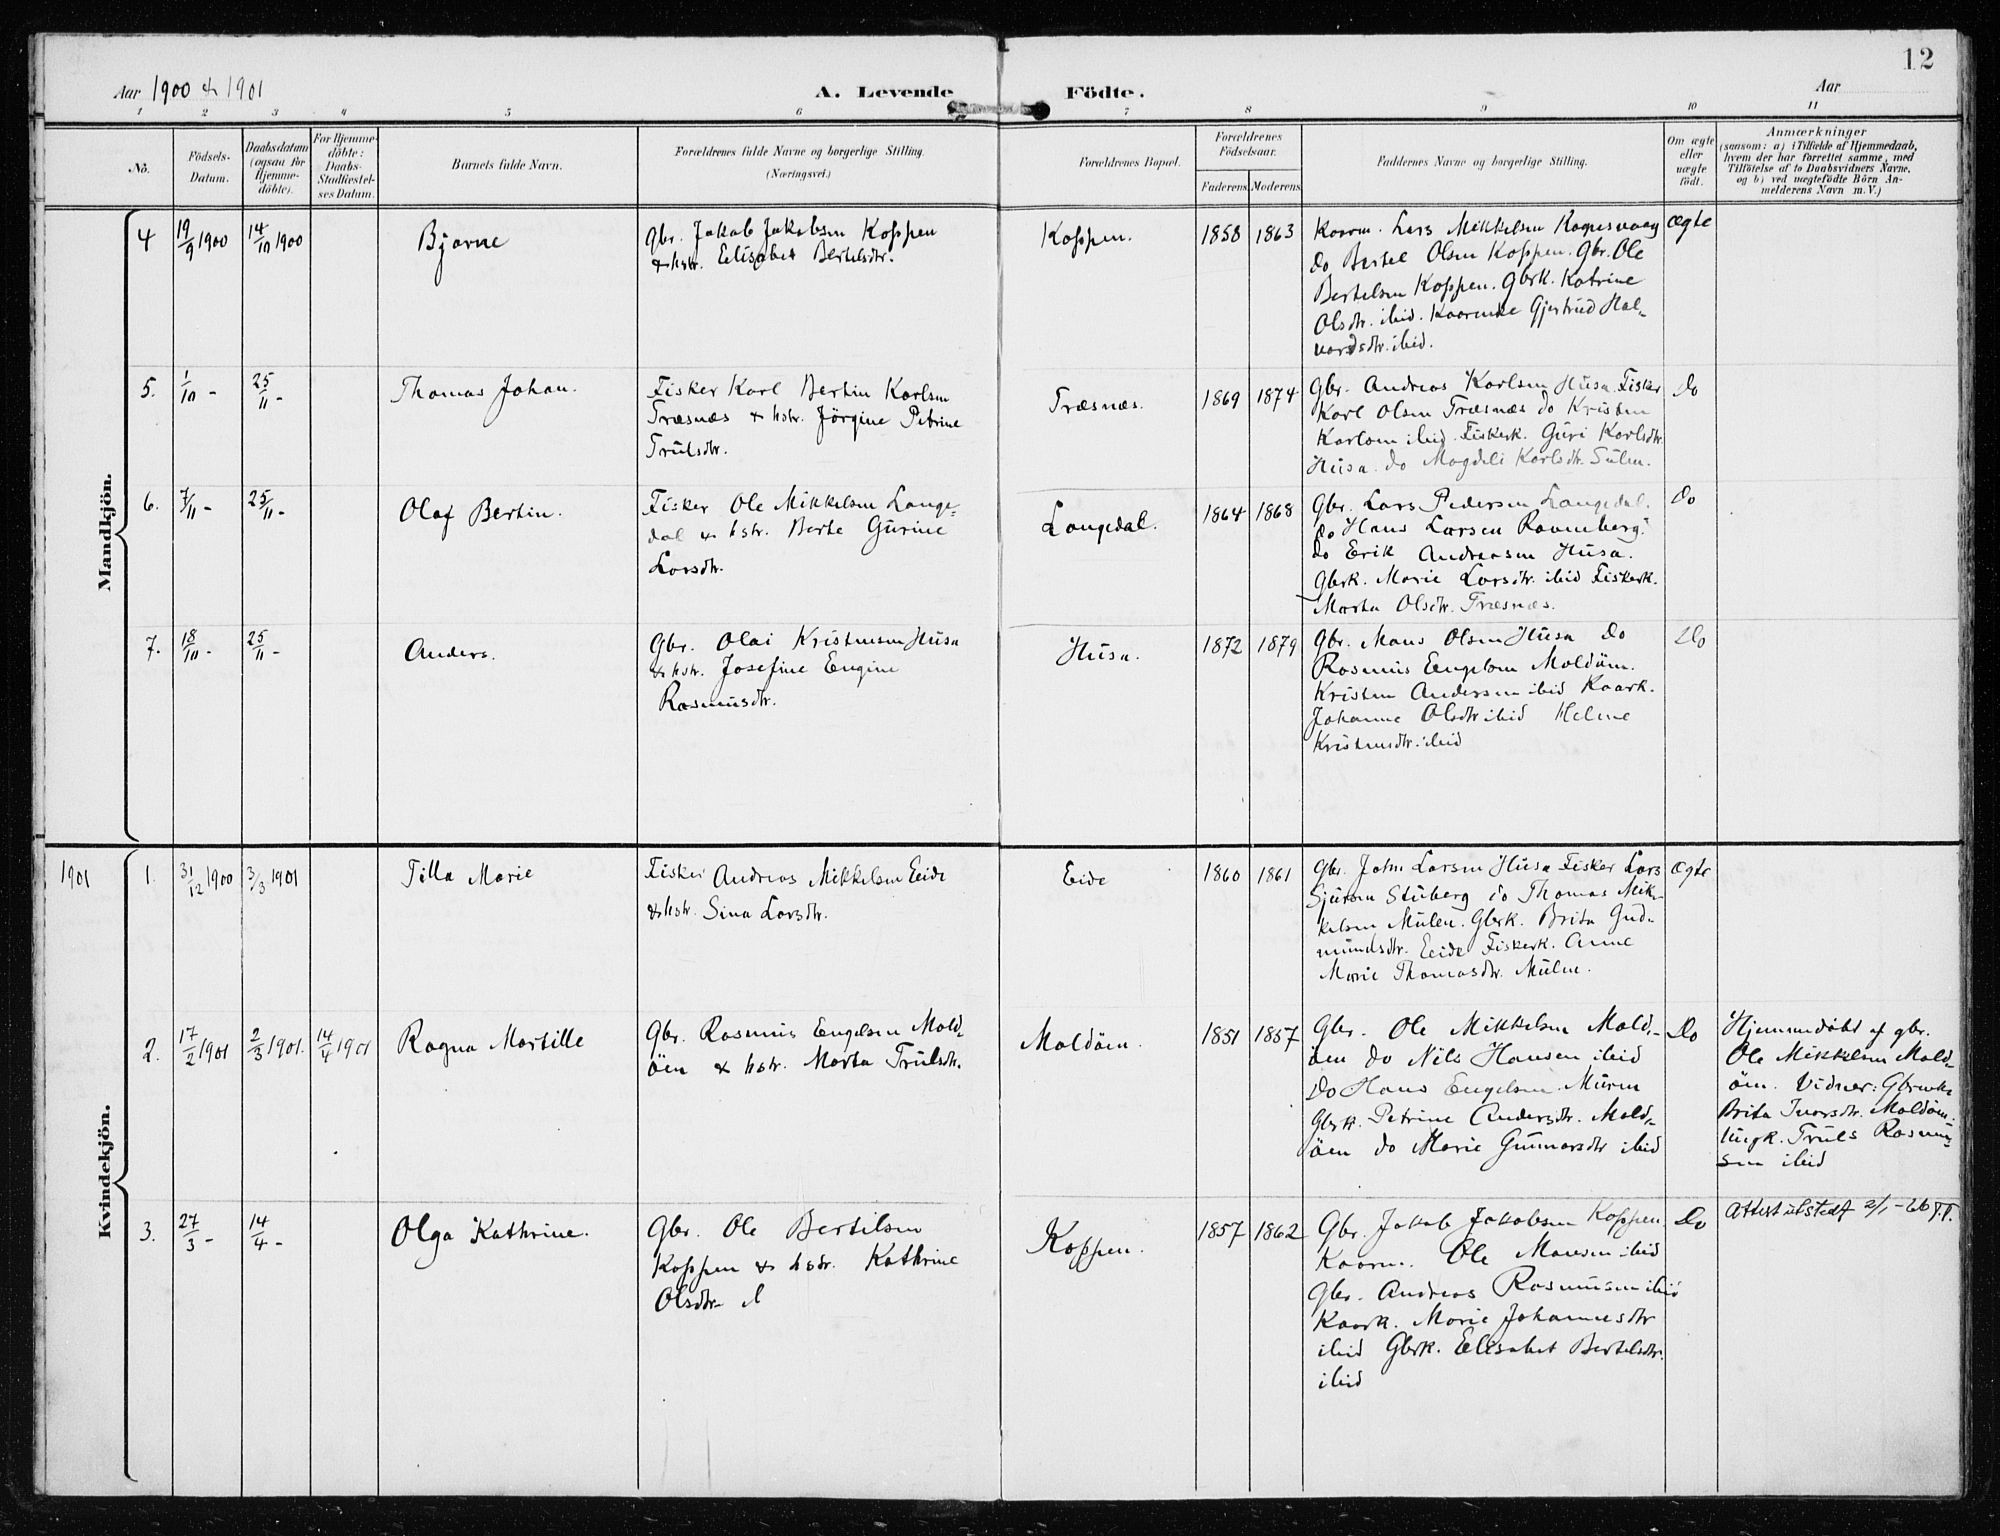 12
Aar 1900 & 1901
A. Levende Födte.
Aar
1 2 3 4 5 6 7 8 9 10 11
No.
Födsels-
Datum.
Daabsdatum
(ogsaa for
Hjemme-
döbte).
For Hjemme-
döbte:
Daabs-
Stadfæstel-
ses Datum.
Barnets fulde Navn.
Forældrenes fulde Navne og borgerlige Stilling.
(Næringsvei.)
Forældrenes Bopæl.
Forældrenes
Födselsaar.
Faderens. Moderens.
Faddernes Navne og borgerlige Stilling.
Om ægte
eller
uægte
födt.
Anmærkninger
(saasom: a) i Tilfælde af Hjemmedaab,
hvem der har forrettet samme, med
Tilföielse af to Daabsvidners Navne.
og b) ved uægtefödte Börn An-
melderens Navn m. V.)
Mandkjön.
4
19/9 1900
14/10 1900
Bjarne
Gbr. Jakob Jakobsen Koppen
& hstr. Elisabet Bertelsdtr.
Koppen.
1858 1863
Kaarm. Lars Mikkelsen
do Bertel Olsen Koppen. Gbr. Ole
Bertelsen Koppen. Gbrk. Katrine
Olsdtr. ibid. Kaarenke Gjertrud Hal-
vorsdtr. ibid.
ægte
5.
1/10 -
25/11 -
Thomas Johan.
Fisker Karl Bertin Karlsen
Træsnæs & hstr. Jörgine Petrine
Trulsdtr.
Træsnæs.
1869 1874
Gbr. Andreas Karlsen Husa. Fisker
Karl Olsen Træsnæs do Kristen
Karlsen ibid. Fiskerk. Guri Karlsdtr
Husa. do Magdeli Karlsdtr. Sulen.
do
6.
7/11 -
25/11 -
Olaf Bertin.
Fisker Ole Mikkelsen Lange-
dal & hstr. Berte Gurine
Larsdtr.
Langedal.
1864 1868
Gbr. Lars Pedersen Langedal.
do Hans Larsen Ravneberg.
do Erik Andreasen Husa.
Gbrk. Marie Larsdtr. ibid Fiskerk.
Marta Olsdtr. Træsnæs.
do
7.
18/10 -
25/11 -
Anders.
Gbr. Olai Kristensen Husa
& hstr. Josefine Engine
Rasmusdtr.
Husa.
1872 1879
Gbr. Mons Olsen Husa do
Rasmus Engelsen Moldöen.
Kristen Andersen ibid Kaark.
Johanne Olsdtr ibid Helene
Kristensdtr. ibid
Do
1901
Kvindekjön.
1.
31/12 1900
3/3 1901
Tilla Marie
Fisker Andreas Mikkelsen Eide
& hstr. Sina Larsdtr.
Eide
1860 1861
Gbr. John Larsen Husa Fisker Lars
Sjursen Stuberg do Thomas Mik-
kelsen Mulen. Gbrk. Brita Gud-
mundsdtr. Eide Fiskerk. Anne
Marie Thomasdtr. Mulen.
ægte
2.
17/2 1901
2/3 1901.
14/4 1901
Ragna Martille
Gbr. Rasmus Engelsen Mold-
öen & hstr. Marta Trulsdtr.
Moldöen.
1851 1857
Gbr. Ole Mikkelsen Mold-
öen do Nils Hansen ibid
Do Hans Engelsen Muren
Gbrk. Petrine Andersdtr. Mold-
öen do Marie Gunnarsdtr ibid
Do
Hjemmedöbt af gbr.
Ole Mikkelsen Mold-
öen. Vidner: Gbrenke
Brita Ivarsdtr. Moldöen.
Ungk. Truls Rasmus-
sen ibid
3.
27/3 -
14/4 -
Olga Kathrine.
Gbr. Ole Bertilsen
Koppen & hstr. Kathrine
Olsdtr.
Koppen.
1857 1862
Gbr. Jakob Jakobsen Koppen
Kaarm. Ole Monsen ibid
Gbr. Andreas Rasmusen ibid
Kaark. Marie Johannesdtr
ibid Gbrk. Elisabet Bertelsdtr.
ibid
Do
Attest utstedt 2/1-66